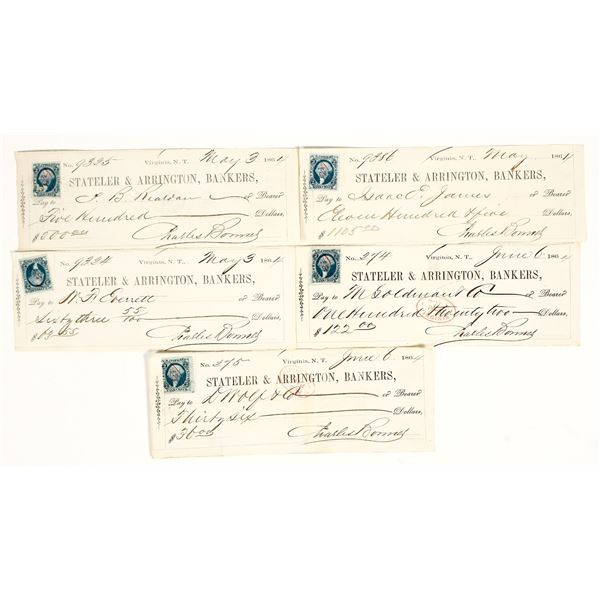 No. 9325 Virginia, N. T. May 3 1864
STATELER & ARRINGTON, BANKERS,
Pay to J. B. Reardan or Bearer
Five Hundred Dollars,
$500.00 Charles Bonner
No. 9386 Virginia, N. T. May 1864
STATELER & ARRINGTON, BANKERS,
Pay to Isaac E. James or Bearer
Eleven Hundred & five Dollars,
$1105.00 Charles Bonner
No. 9324 Virginia, N. T., May 3 1864
STATELER & ARRINGTON, BANKERS,
Pay to W. F. Everett or Bearer
Sixty three 55/100 Dollars,
$63.55 Charles Bonner
No. 274 Virginia, N. T. June 6 1864
STATELER & ARRINGTON, BANKERS,
Pay to M Goldman & Co or Bearer
One Hundred & Twenty two Dollars,
$122.00 Charles Bonner
No. 375 Virginia, N. T. June 6 1864
STATELER & ARRINGTON, BANKERS,
Pay to D Wolf & Co or Bearer
Thirty Six Dollars,
$36.00 Charles Bonner